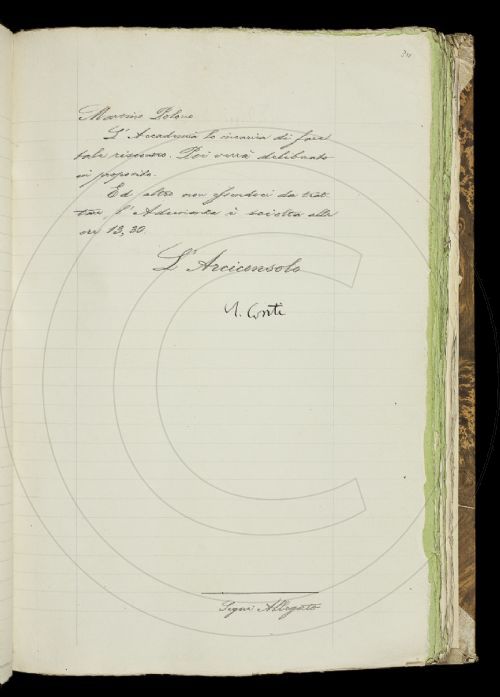 Martino Polono
L'Accademia lo incarica di fare
tale riscontro. Poi verrà deliberato
in proposito.
Ed altro non essendoci da trat-
tare l'Adunanza è sciolta alle
ore 13,30.
L'Arciconsolo
Conti
Segue Allegato